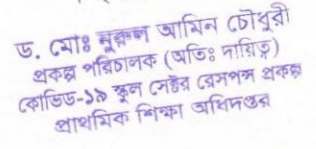 ড. মোঃ নুরুল আমিন চৌধুরী
প্রকল্প পরিচালক (অতিঃ দায়িত্ব)
কোভিড-১৯ স্কুল সেক্টর রেসপন্স প্রকল্প
প্রাথমিক শিক্ষা অধিদপ্তর